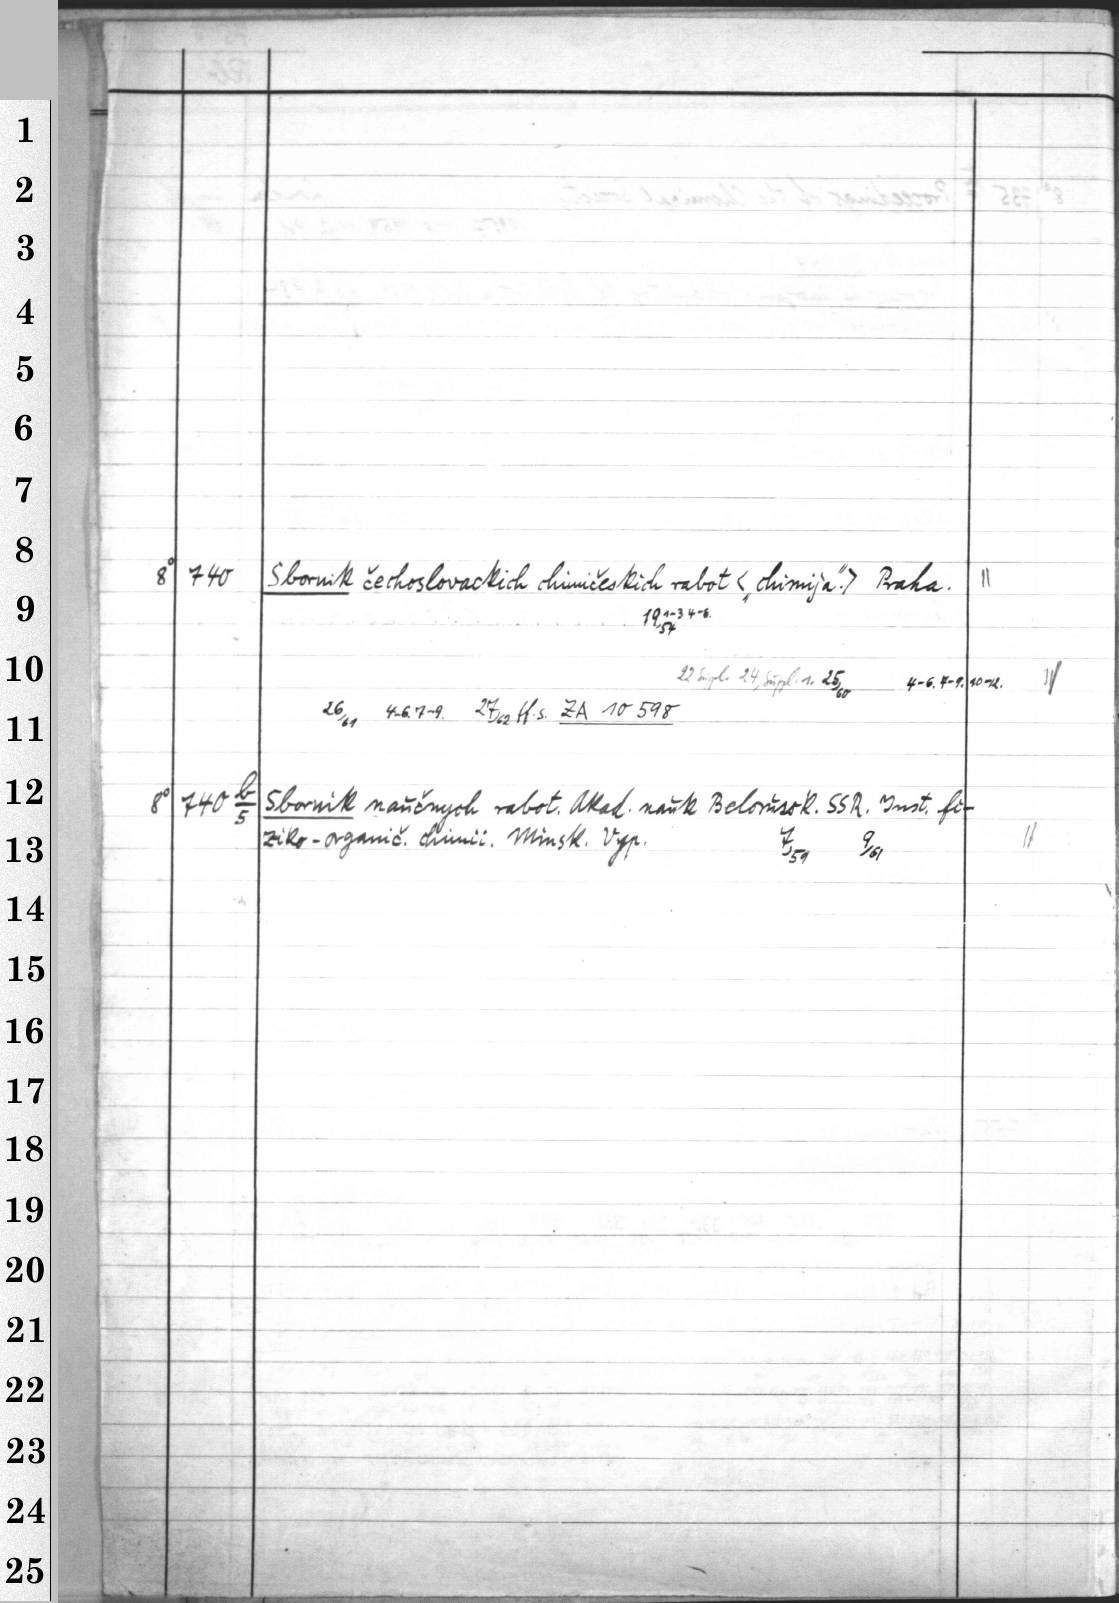 1
2
3
4
5
6
7
8
8° 740 Sbornik čechoslovackich chimičeskich rabot <„chimija".> Praha. "
9
19/54 1-3 4-6.
10
22 Suppl. 24, Suppl. 1. 25/60 4-6. 7-9. 10-12. "
26/61 4-6. 7-9. 27/62 ff. s. ZA 10 598
11
12
8° 740 b/5 Sbornik naučnych rabot. Akad. nauk Belorussk. SSR. Inst. fi-
13
ziko-organič. chimii. Minsk. Vyp. 7/59 9/61 "
14
15
16
17
18
19
20
21
22
23
24
25